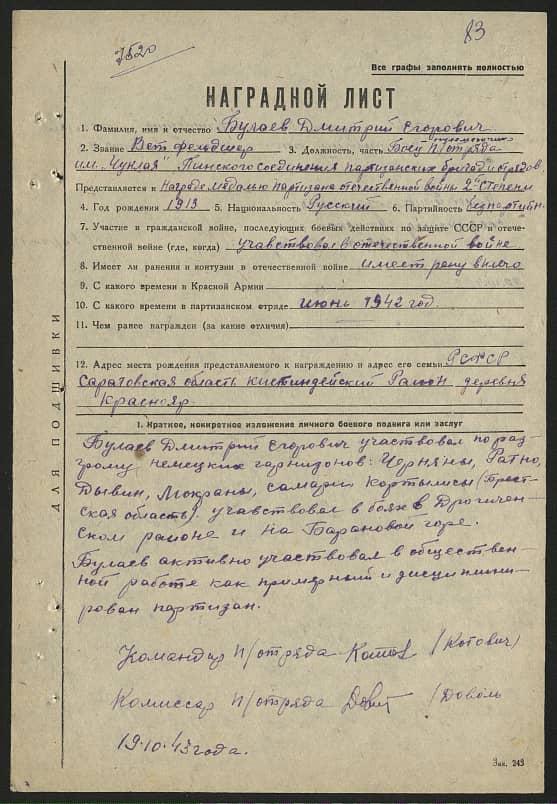 83
7520
Все графы заполнять полностью
НАГРАДНОЙ ЛИСТ
1. Фамилия, имя и отчество Булаев Дмитрий Егорович
2. Звание Ветфельдшер 3. Должность, часть Боец п/отряда
им. "Чуклая" Пинского соединения партизанских бригад и отрядов
Представляется к Награде медалью партизана отечественной войны 2й степени
4. Год рождения 1913 5. Национальность Русский 6. Партийность беспартийн.
7. Участие в гражданской войне, последующих боевых действиях по защите СССР и отече-
ственной войне (где, когда) учавствовал в отечественной войне
8. Имеет ли ранения и контузии в отечественной войне имеет рану в плечо
9. С какого времени в Красной Армии
10. С какого времени в партизанском отряде июнь 1942 год.
11. Чем ранее награжден (за какие отличия)
12. Адрес места рождения представляемого к награждению и адрес его семьи РСФСР
Саратовская область кистиндейский Район деревня
Краснояр.
1. Краткое, конкретное изложение личного боевого подвига или заслуг
Булаев Дмитрий Егорович участвовал по раз
грому немецких гарнизонов: Черняны, Ратно,
Дывин, Мокраны, самари кортылисы (Брест-
ская область). учавствовал в боях в Дрогичен-
ском районе и на Барановой горе.
Булаев активно участвовал в обществен-
ной работе как примерный и дисциплини-
рован партизан.
Командир п/отряда (Котович)
Комиссар п/отряда (Доволь
19.10.43 года.
Зак. 243
ДЛЯ ПОДШИВКИ